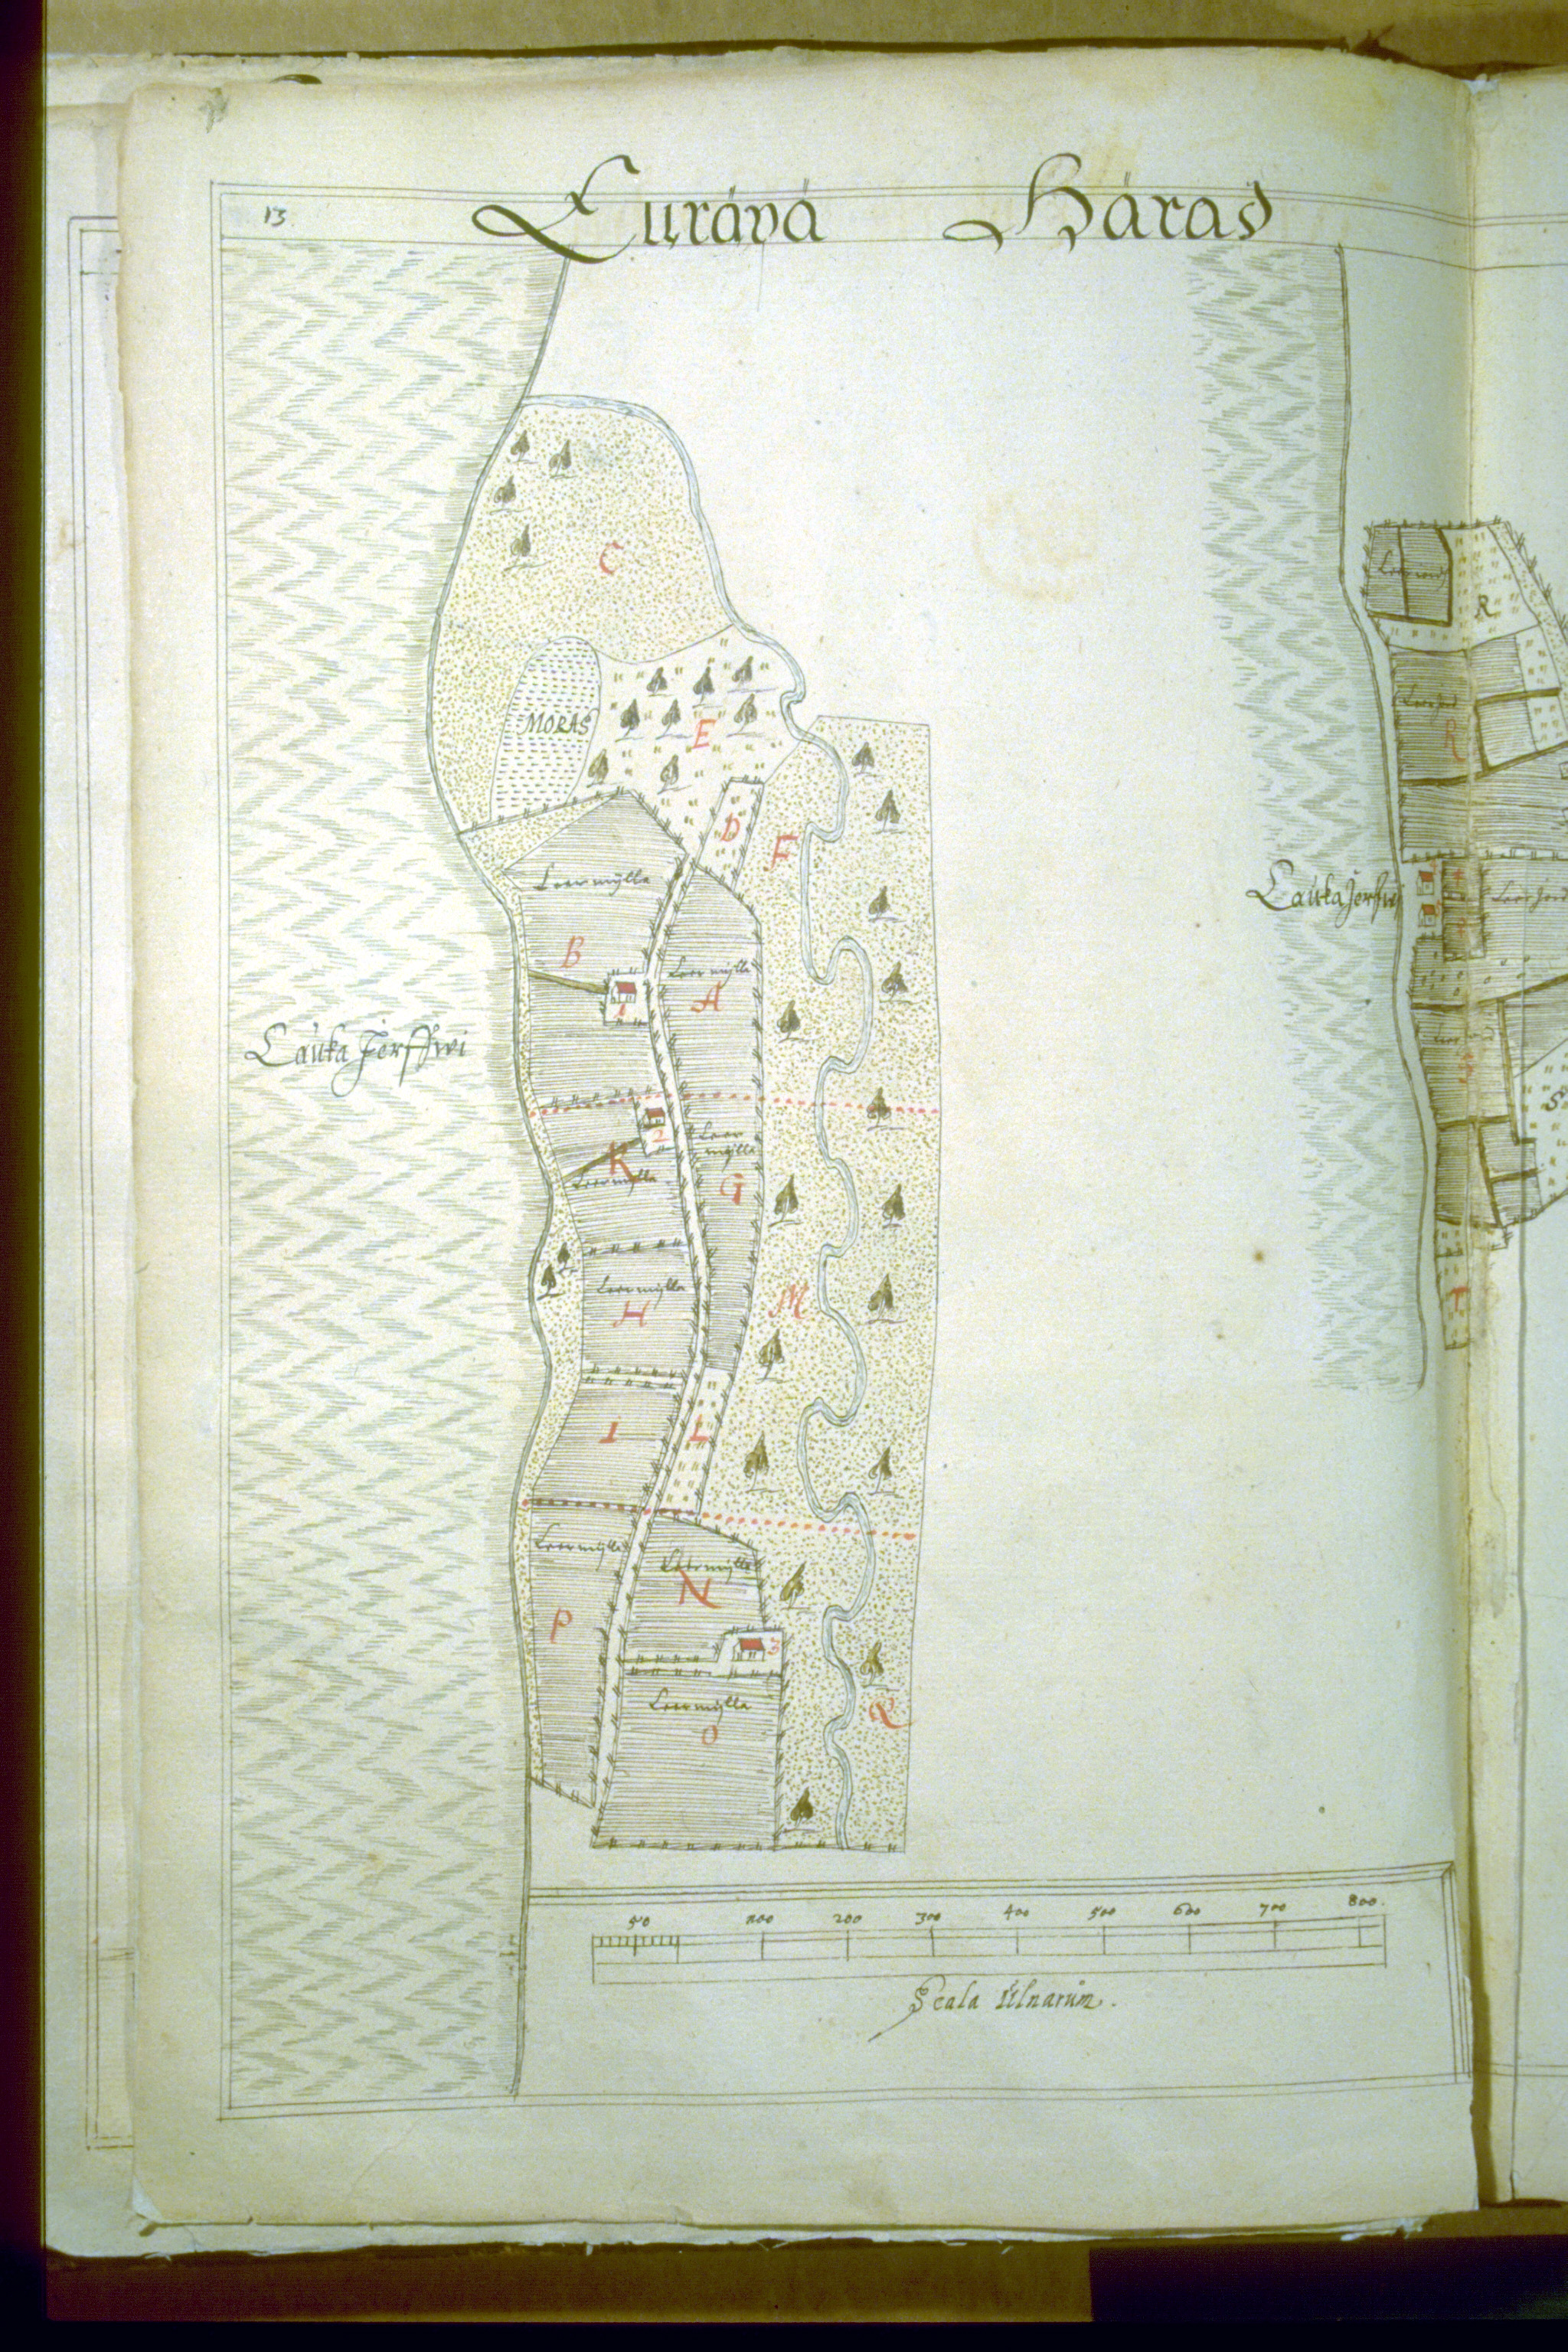 13.
Lurävä Häras
C
MORAS
E
D
F
Leermylla
B
Leermylla
A
1
Lauka Jerffwi
2
K
Leermylla
Leer
mylla
G
Leermylla
H
M
I
L
Leermylla
Leermylla
N
P
3
Leermylla
O
Q
R
R
Lauka Jerffwi
S
S
T
50 100 200 300 400 500 600 700 800.
Scala Ulnarum.